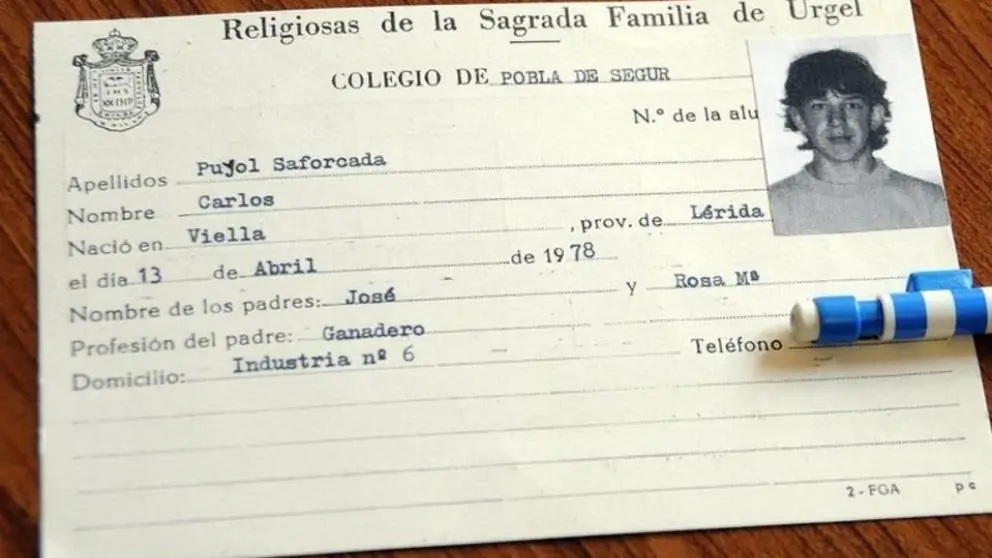 Religiosas de la Sagrada Familia de Urgel
COLEGIO DE POBLA DE SEGUR
N.º de la alu
Apellidos Pujol Saforcada
Nombre Carlos
Nació en Viella, prov. de Lérida
el día 13 de Abril de 1978
Nombre de los padres: José y Rosa Mª
Profesión del padre: Ganadero
Domicilio: Industria nº 6 Teléfono
2-FGA